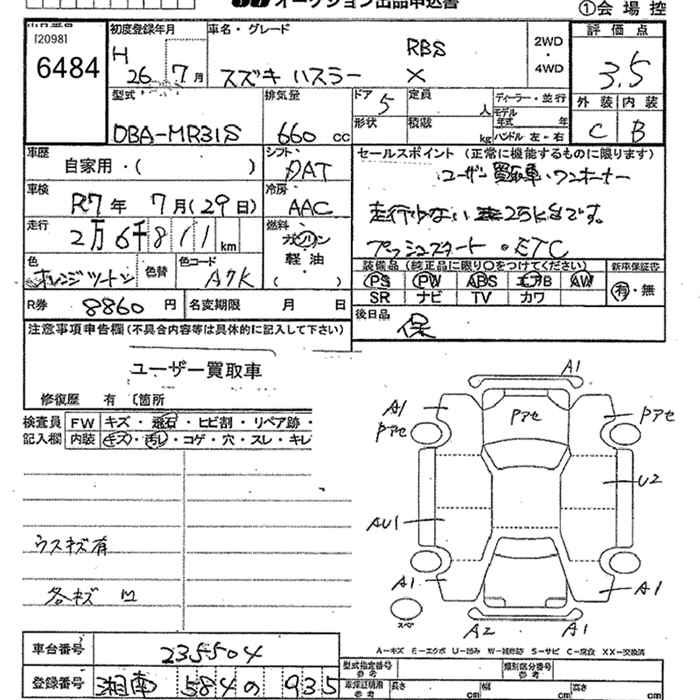 オークション出品申込書
①会場控
[2098]
6484
初度登録年月
H 26 7月
車名・グレード
スズキ ハスラー
RBS
X
2WD
・
4WD
評価点
3.5
外装 内装
C B
型式
DBA-MR31S
排気量
660 cc
ドア 5
形状
定員 人
積載 kg
ディーラー・並行
モデル年式 年
ハンドル 左・右
車歴
自家用・( )
シフト
DAT
セールスポイント (正常に機能するものに限ります)
ユーザー買取車・ワンオーナー
車検
R7年 7月(29日)
冷房
AAC
走行
2万6千811km
燃料
ガソリン
軽油
( )
プッシュスタート・ETC
色
オレンジツートン
色替
色コード
A7K
装備品(純正品に限り○をつけてください)
PS PW ABS エアB AW
SR ナビ TV カワ
新車保証書
有・無
R券 8860円
名変期限 月 日
後日品
保
注意事項申告欄(不具合内容等は具体的に記入して下さい)
ユーザー買取車
修復歴 有 〔箇所
検査員記入欄
FW キズ・飛石・ヒビ割・リペア跡・
内装 キズ・汚レ・コゲ・穴・スレ・キレ
ウスキズ有
各キズ凹
A1
A1
Pアセ
Pアセ
Pアセ
U2
AU1
A1
A1
スペ
A2
A1
A-キズ E-エクボ U-凹み W-補修跡 S-サビ C-腐食 XX-交換済
車台番号
235504
登録番号
湘南 584 の 935
型式指定番号
参考
類別区分番号
参考
車検証積用
参考
長さ cm
幅 cm
高さ cm